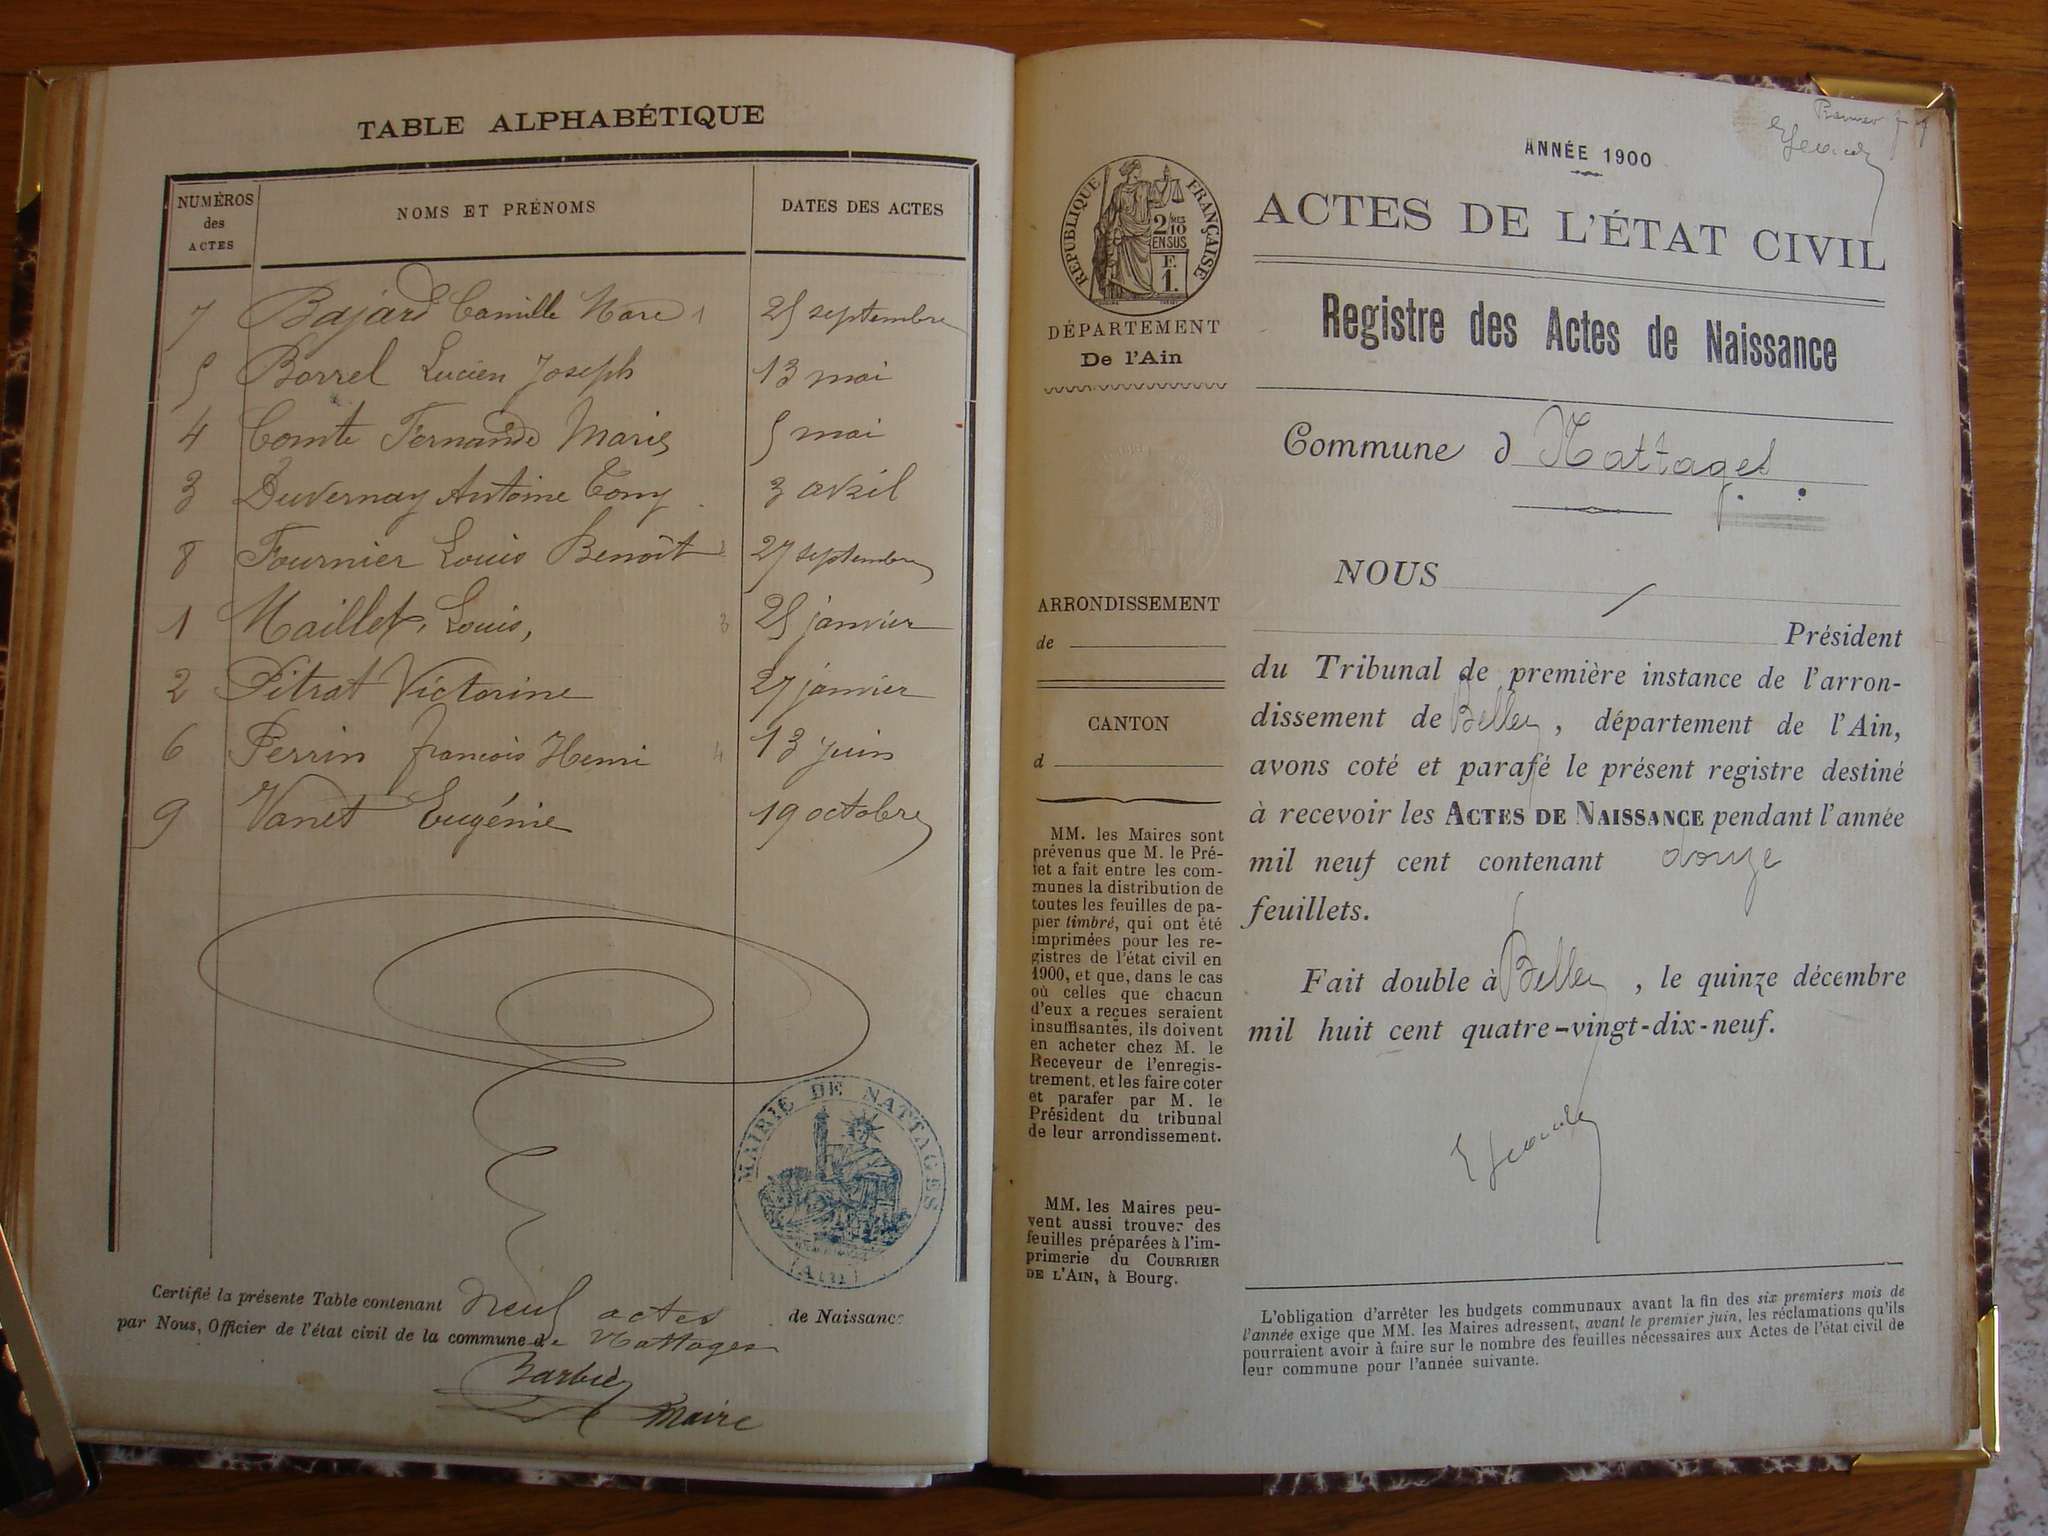 TABLE ALPHABÉTIQUE
NUMÉROS
des
ACTES
NOMS ET PRÉNOMS
DATES DES ACTES
7 Bajard Camille Marc 1 25 septembre
5 Borrel Lucien Joseph 13 mai
4 Comte Fernande Marie 5 mai
3 Duvernay Antoine Tony 3 avril
8 Fournier Louis Benoît 2 27 septembre
1 Maillet, Louis, 3 25 janvier
2 Pitrat Victorine 27 janvier
6 Perrin françois Henri 4 13 juin
9 Vanet Eugénie 19 octobre
MAIRIE DE NATTAGES
(AIN)
Certifié la présente Table contenant neuf actes de Naissance
par Nous, Officier de l'état civil de la commune de Nattages
Barbier
Maire
Premier
ANNÉE 1900
ACTES DE L'ÉTAT CIVIL
Registre des Actes de Naissance
RÉPUBLIQUE FRANÇAISE
2/10
EN SUS
F.
1.
DÉPARTEMENT
De l'Ain
Commune d Nattages
NOUS
ARRONDISSEMENT
de
CANTON
d
Président
du Tribunal de première instance de l'arron-
dissement de Belley, département de l'Ain,
avons coté et parafé le présent registre destiné
à recevoir les ACTES DE NAISSANCE pendant l'année
mil neuf cent contenant douze
feuillets.
Fait double à Belley, le quinze décembre
mil huit cent quatre-vingt-dix-neuf.
MM. les Maires sont
prévenus que M. le Pré-
fet a fait entre les com-
munes la distribution de
toutes les feuilles de pa-
pier timbré, qui ont été
imprimées pour les re-
gistres de l'état civil en
1900, et que, dans le cas
où celles que chacun
d'eux a reçues seraient
insuffisantes, ils doivent
en acheter chez M. le
Receveur de l'enregis-
trement, et les faire coter
et parafer par M. le
Président du tribunal
de leur arrondissement.
MM. les Maires peu-
vent aussi trouver des
feuilles préparées à l'im-
primerie du COURRIER
DE L'AIN, à Bourg.
L'obligation d'arrêter les budgets communaux avant la fin des six premiers mois de
l'année exige que MM. les Maires adressent, avant le premier juin, les réclamations qu'ils
pourraient avoir à faire sur le nombre des feuilles nécessaires aux Actes de l'état civil de
leur commune pour l'année suivante.